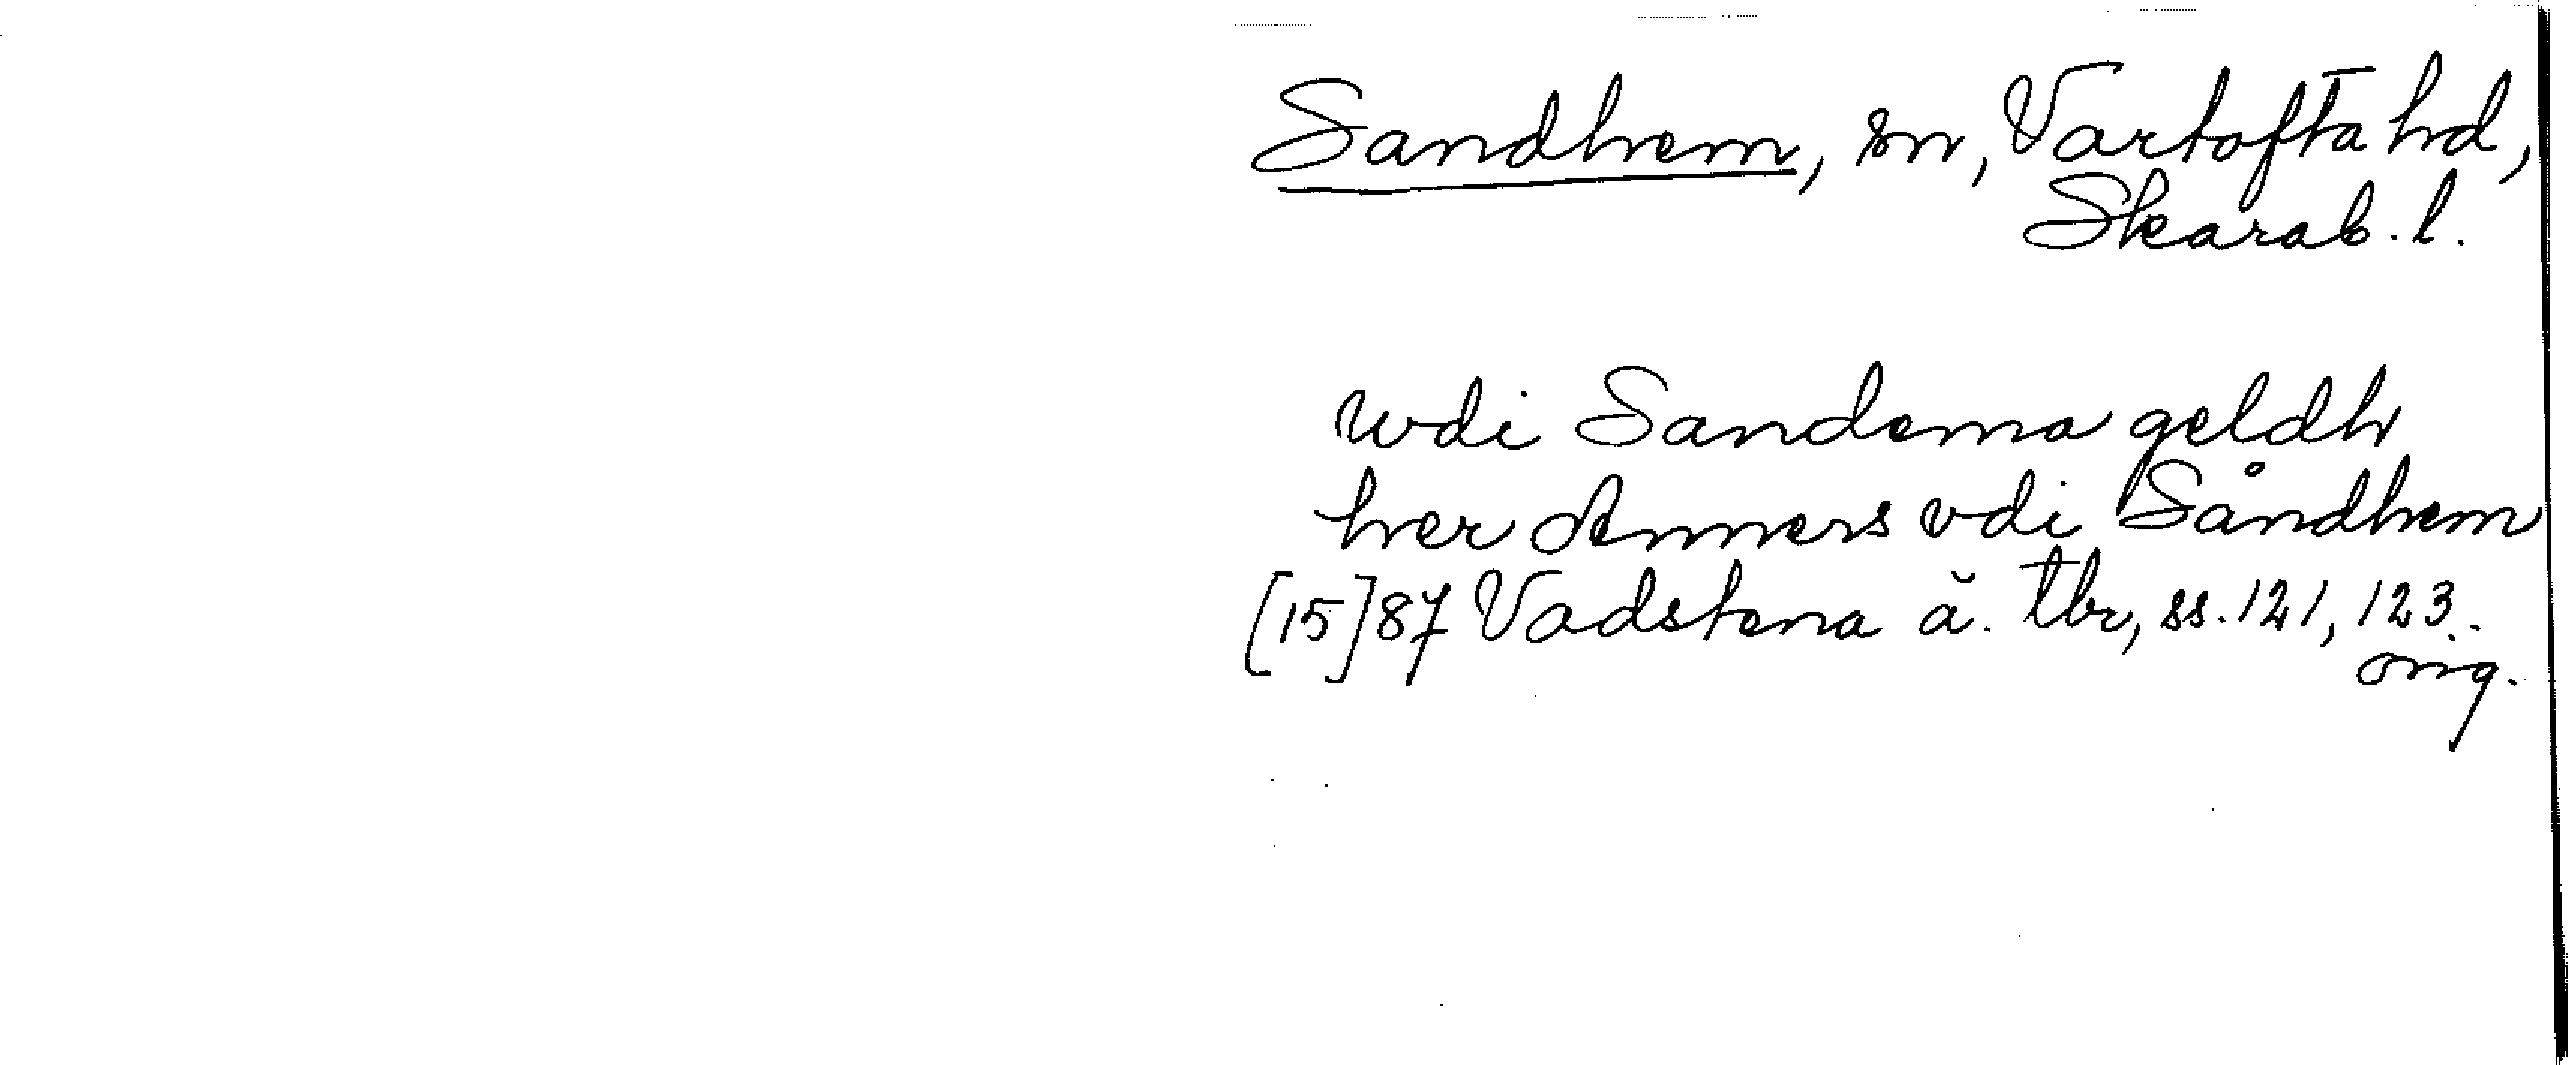 Sandhem, sn, Vartofta hd,
Skarab. l.
wdi Sandema geldh
her Anners vdi Såndhem
[15]87 Vadstena ä. tbr, ss. 121, 123.
orig.